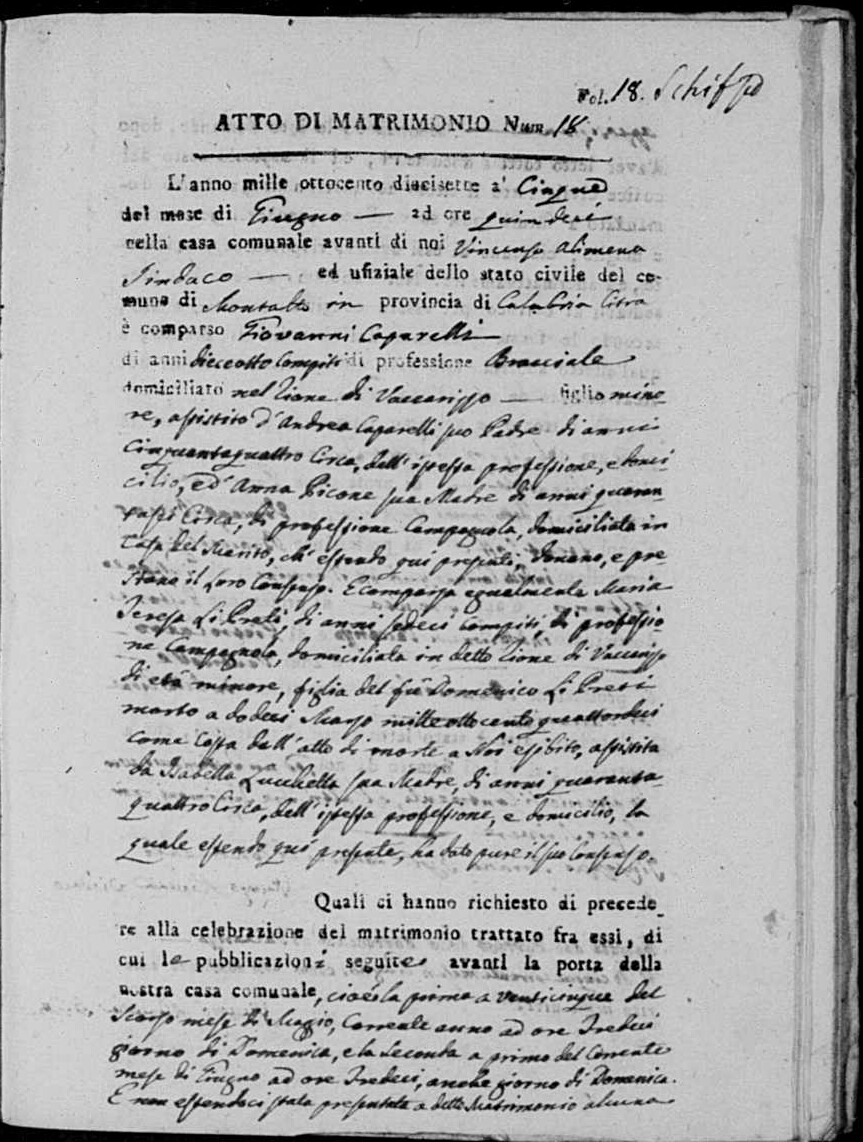 Fol. 18.
ATTO DI MATRIMONIO Num 18
L'anno mille ottocento diecisette a' Cinque
del mese di Giugno — ad ore quindeci
nella casa comunale avanti di noi Vincenzo Alimena
Sindaco — ed ufiziale dello stato civile del co-
mune di Montalto in provincia di Calabria Citra
è comparso Giovanni Caparelli
di anni dieceotto Compiti di professione Bracciale
domiciliato nel Rione di Vaccarizzo — figlio mino
re, assistito d'Andrea Caparelli suo Padre di anni
Cinquantaquattro Circa, dell'istessa professione, e domi
cilio, ed' Anna Picone sua Madre di anni quaran
tasei Circa, di professione Campagnola, domiciliata in
Casa del Marito, ch'essendo qui presenti, donano, e pre
stano il loro Consenso. E comparsa egualmente Maria
Teresa Li Preti, di anni sedeci Compiti, di professio
ne Campagnola, domiciliata in detto Rione di Vaccarizzo
di età minore, figlia del fù Domenico Li Preti
morto a dodeci Marzo mille ottocento quattordeci
come Costa dall'atto di morte a Noi esibito, assistita
da Isabella Lucchetta sua Madre, di anni quaranta-
quattro Circa, dell'istessa professione, e domicilio, la
quale essendo quì presente, ha dato pure il suo Consenso.
Quali ci hanno richiesto di precede_
re alla celebrazione del matrimonio trattato fra essi, di
cui le pubblicazioni seguite avanti la porta della
nostra casa comunale, cioè la prima a venticinque del
Scorso mese di Maggio, Corrente anno ad ore Tredeci
giorno di Domenica, e la Seconda a primo del Corrente
mese di Giugno ad ore Tredeci, anche giorno di Domenica.
E non essendoci stata presentata a detto Matrimonio alcuna